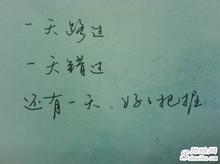 一天路过
一天错过
还有一天、好々把握